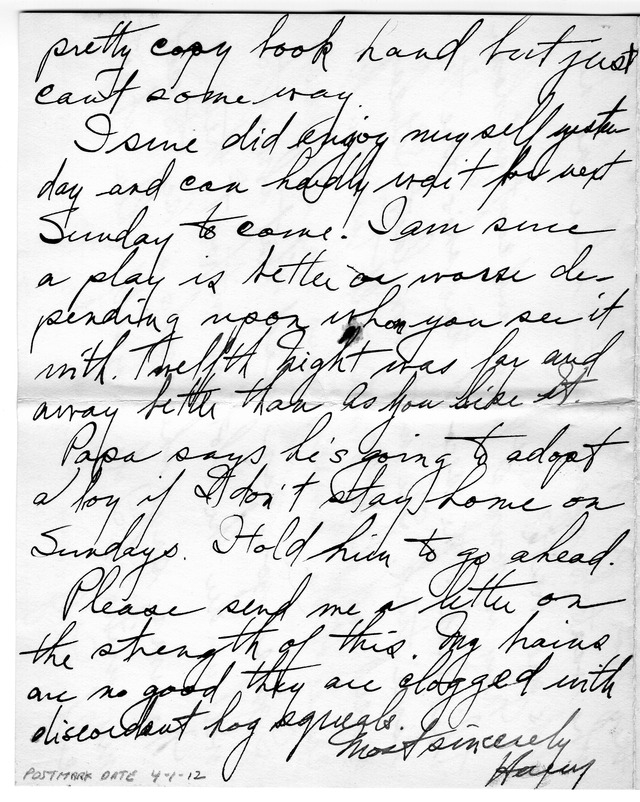 pretty copy book hand but just
can't some way.
I sure did enjoy myself yester
day and can hardly wait for next
Sunday to come. I am sure
a play is better or worse de-
pending upon whom you see it
with. Twelfth Night was far and
away better than As You Like it.
Papa says he's going to adopt
a boy if I don't stay home on
Sundays. I told him to go ahead.
Please send me a letter on
the strength of this. My brains
are no good they are clogged with
discordant hog squeals.
Most sincerely
Harry
POSTMARK DATE 4-1-12